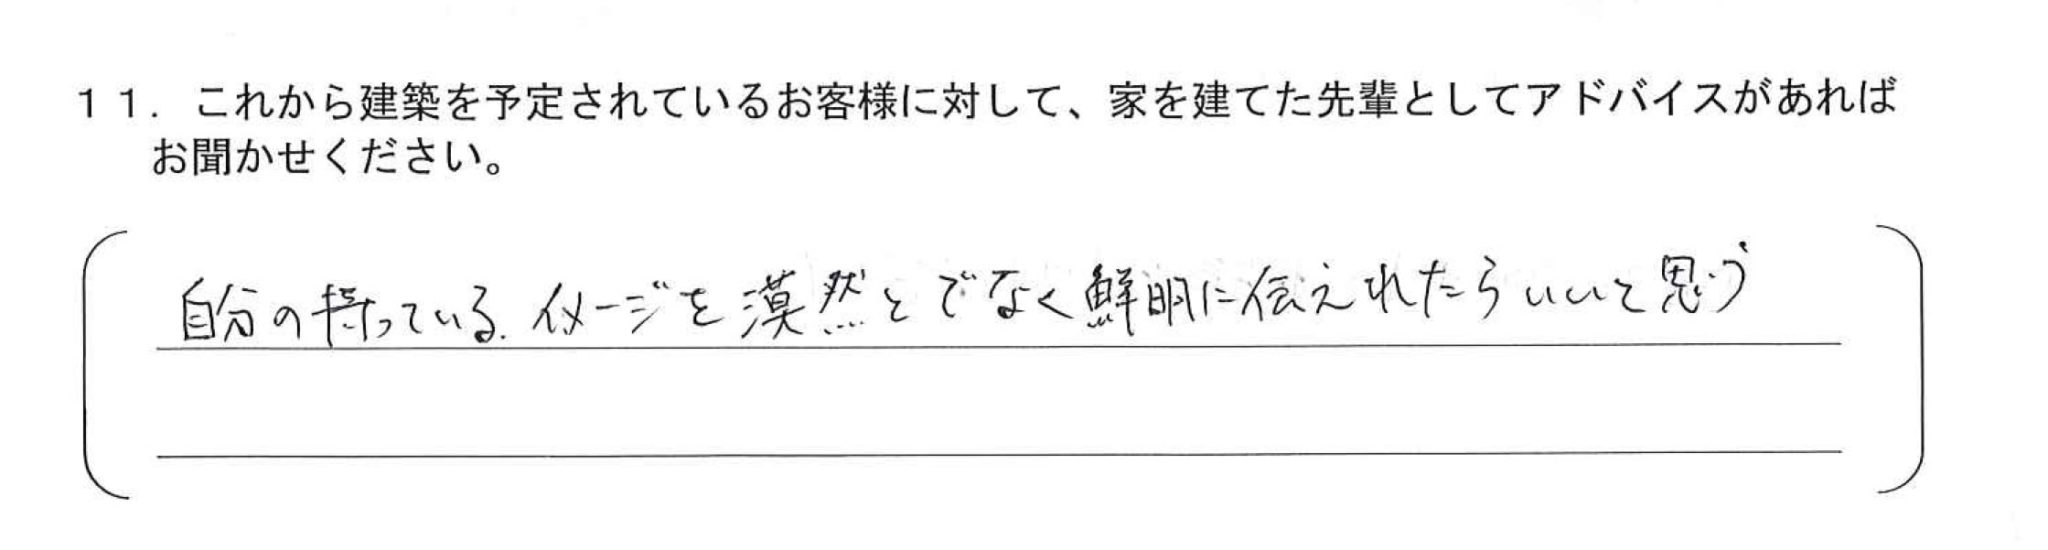 11．これから建築を予定されているお客様に対して、家を建てた先輩としてアドバイスがあれば
お聞かせください。
自分の持っている.イメージを漠然とでなく鮮明に伝えれたらいいと思う